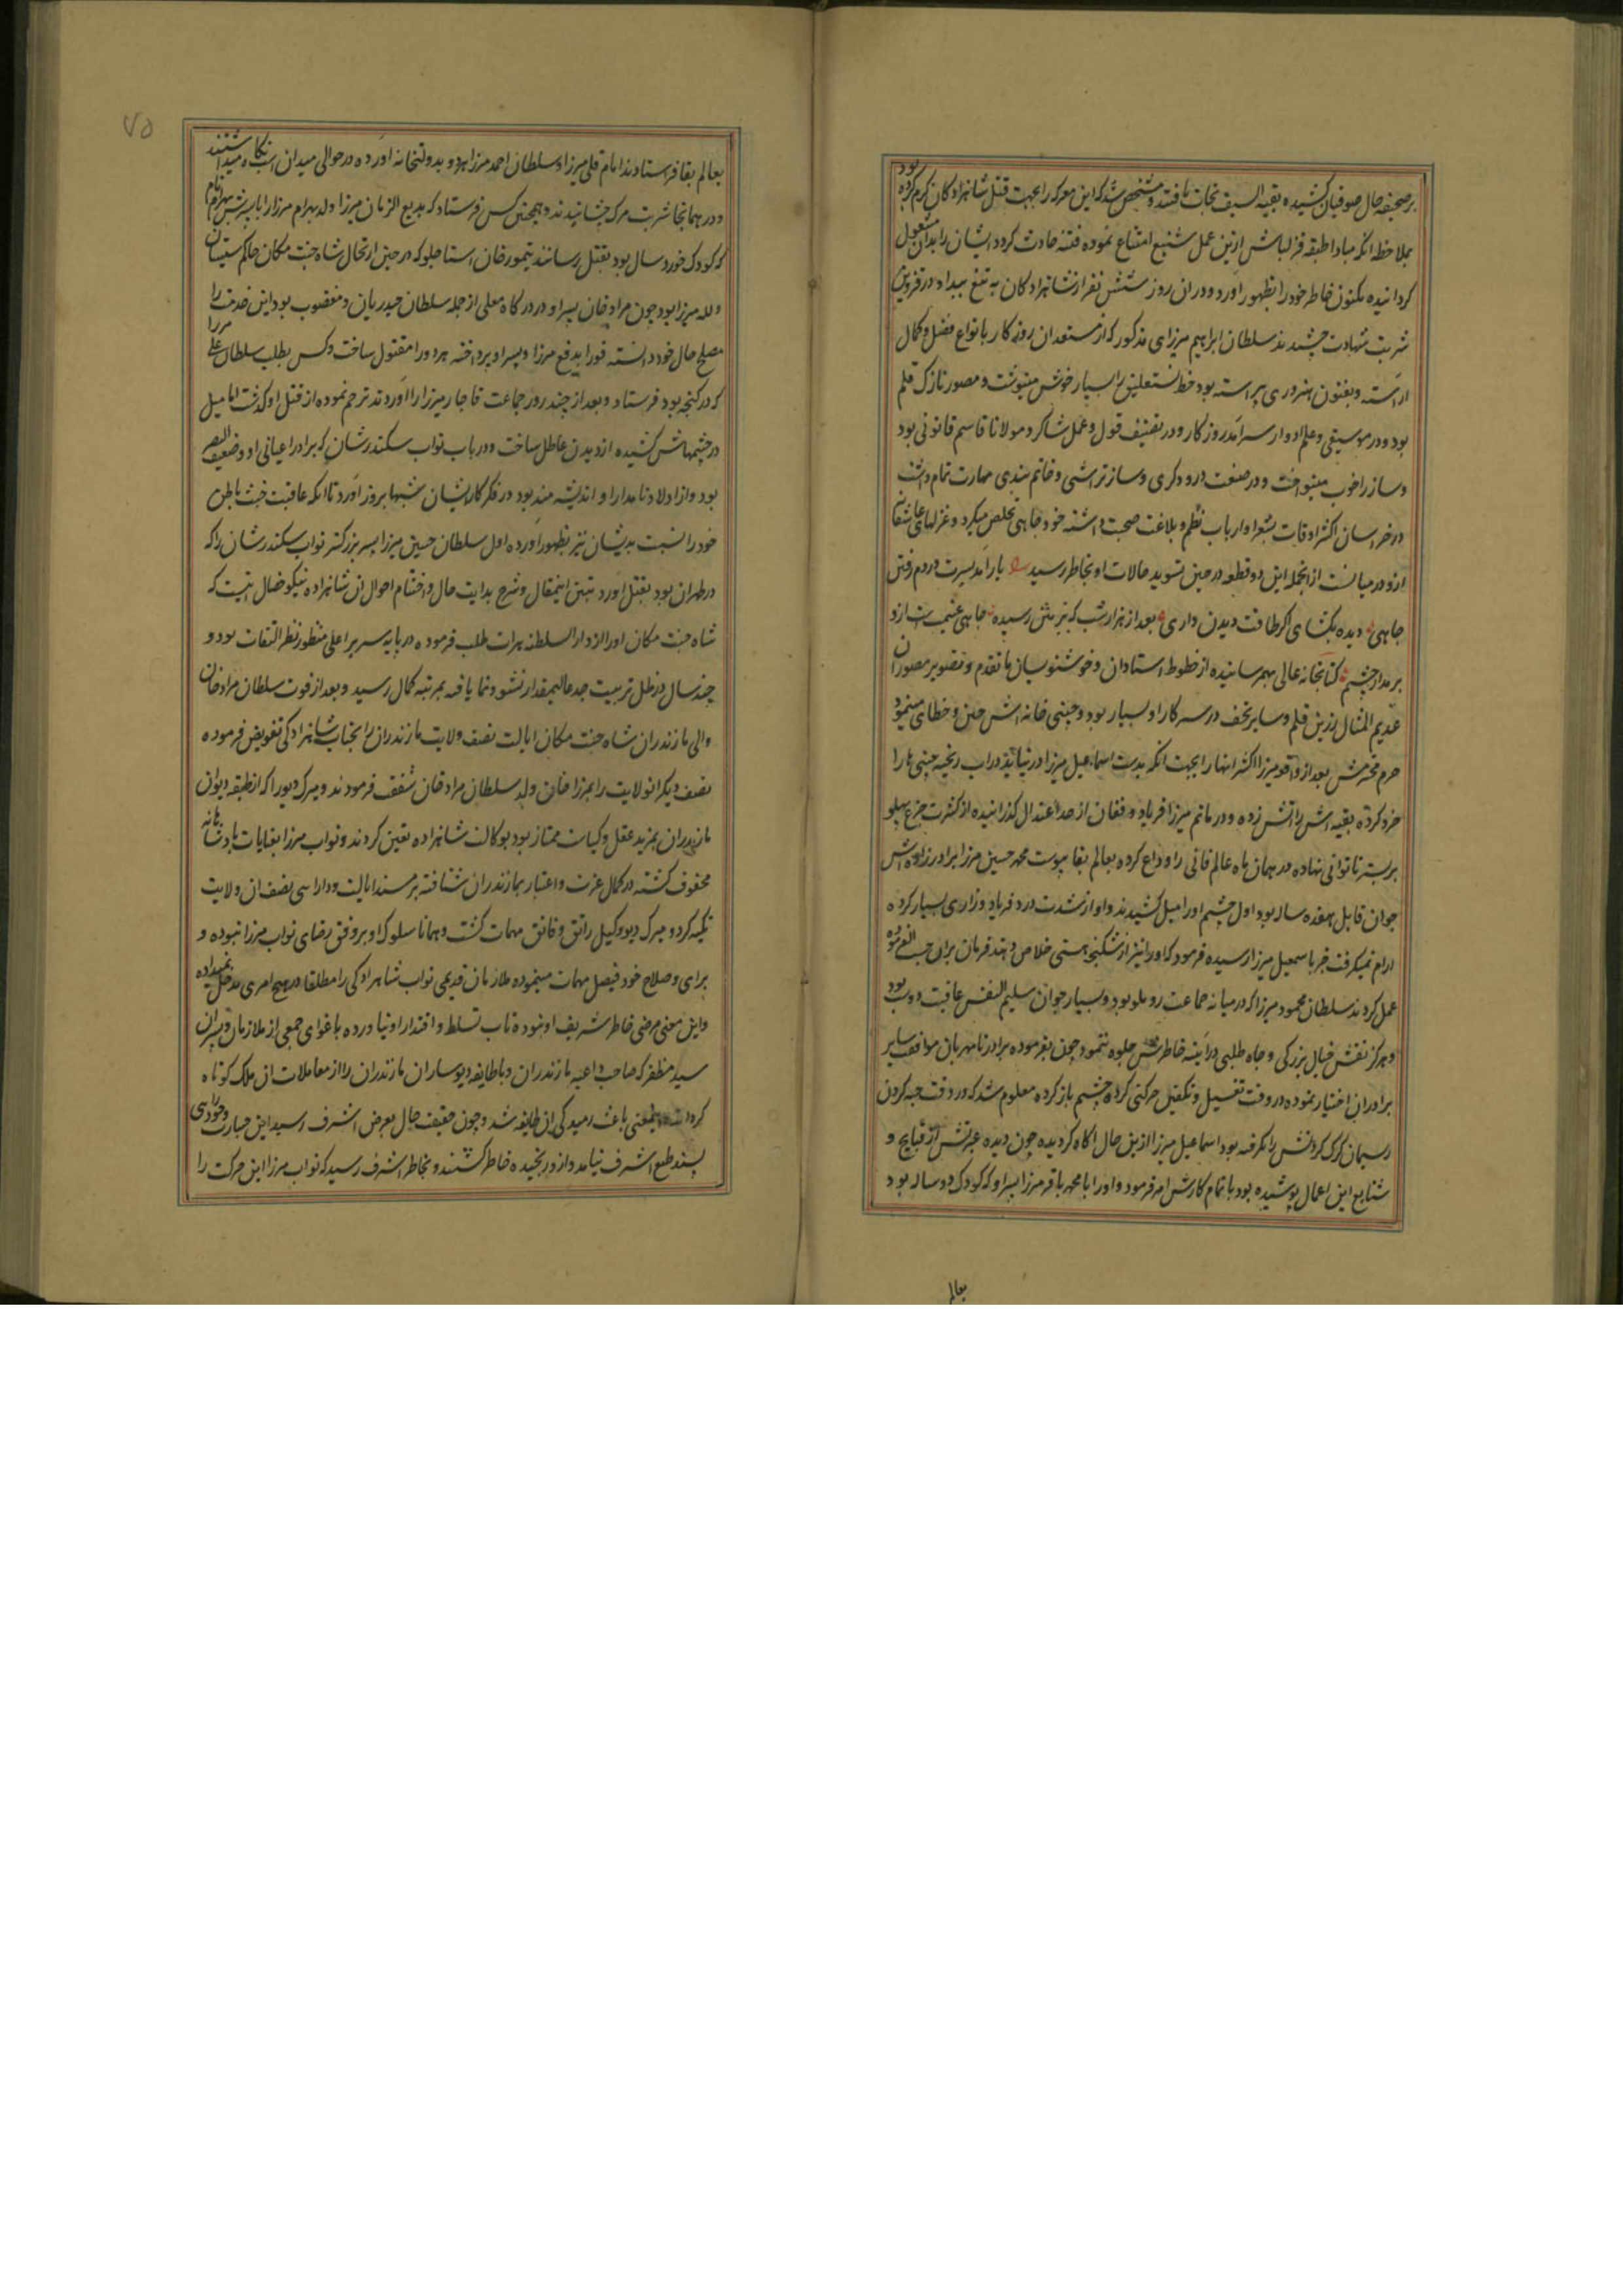 بر صحیفه حال صوفیان کشیده بقیه السیف نجات یافتند و مشخص شد که این معرکه را بجهت قتل شاهزادکان کرم کرده بود
بملاحظه انکه مبادا طبقه قزلباش ازین عمل شنیع امتناع نموده فتنه حادث کردد ایشان را بدان مشغول
کردانیده مکنون خاطر خود را بظهور اورد و دران روز شش نفر از شاهزادکان به تیغ بیداد در قزوین
شربت شهادت چشیدند سلطان ابراهیم میرزای مذکور که از مستعدان روزکار بانواع فضل و کمال
اراسته و بفنون هنروری پیراسته بود خط نستعلیق را بسیار خوش مینوشت و مصور نازک قلم
بود و در موسیقی و علم ادوار سرامد روزکار و در تصنیف قول و عمل شاکرد مولانا قاسم قانونی بود
و ساز را خوب مینواخت و در صنعت درودکری و ساز تراشی و خاتم بندی مهارت تمام داشت
در خراسان اکثر اوقات بشعرا و ارباب نظم و بلاغت صحبت داشته خود جاهی تخلص میکرد و غزلهای عاشقانه
ازو در میانست از انجمله این دو قطعه در حین تسوید حالات او بخاطر رسید یار امد بسرت در دم رفتن
جاهی دیده بکشای اکر طاقت دیدن داری بعد از هزار شب که بزمش رسیده جاهی غنیمت است ازو
بر مدار چشم کتابخانه عالی بهمرسانیده از خطوط استادان و خوشنویسان ما تقدم و تصویر مصوران
عدیم المثال زرین قلم و سایر تحف در سرکار او بسیار بود و چینی خانه اش چین و خطای مینمود
حرم محترمش بعد از واقعه میرزا اکثر انها را بجهت انکه بدست اسماعیل میرزا در نیاید در اب ریخته چینی ها را
خرد کرده بقیه اش را اتش زده و در ماتم میرزا فریاد و فغان از حد اعتدال کذرانیده از کثرت جزع پهلو
بر بستر ناتوانی نهاده در همان ماه عالم فانی را وداع کرده بعالم بقا پیوست محمد حسین میرزا برادرزاده اش
جوان قابل هفده ساله بود اول چشم او را میل کشیدند و او از شدت درد فریاد و زاری بسیار کرده
ارام نمیکرفت خبر باسمعیل میرزا رسیده فرمود که او را نیز از شکنجه هستی خلاص دهند قربان بران حسب الفرموده
عمل کردند سلطان محمود میرزا که در میانه جماعت روملو بود و بسیار جوان سلیم النفس عاقبت دوست بود
و هرکز نقش خیال بزرکی و جاه طلبی در اینه خاطرش جلوه ننمود چون بفرموده برادر نامهربان موافقت سایر
برادران اختیار نموده در وقت تغسیل و تکفین حرکتی کرده چشم باز کرده معلوم شد که در وقت خبه کردن
ریسمان کرک کردنش را نکرفته بود اسماعیل میرزا ازین حال اکاه کردیده چون دیده عبرتش از قبایح و
شنایع این اعمال پوشیده بود باتمام کارش امر فرمود و او را با محمد باقر میرزا پسر او که کودک دو ساله بود
بعالم
۷۵
بعالم بقا فرستادند امام قلی میرزا و سلطان احمد میرزا هردو بدولتخانه اورده در حوالی میدان اسب نکاه میداشتند
و در همانجا شربت مرک چشانیدند و همچنین کس فرستاد که بدیع الزمان میرزا ولد بهرام میرزا را با پسرش بهرام نام
که کودک خورد سال بود بقتل رسانند تیمور خان استاجلو که در حین ارتحال شاه جنت مکان حاکم سیستان
و لله میرزا بود چون مراد خان پسر او در درکاه معلی از جمله سلطان حیدریان و مغضوب بود این خدمت را
مصلح حال خود دانسته فورا بدفع میرزا و پسر او پرداخته هردو را مقتول ساخت و کس بطلب سلطان علی میرزا
که در کنجه بود فرستاد و بعد از چند روز جماعت قاجار میرزا را اوردند ترحم نموده از قتل او کذشت اما میل
در چشمهاش کشیده از دیدن عاطل ساخت و در باب نواب سکندر شان که برادر اعیانی او و ضعیف البصر
بود و از اولاد نامدار او اندیشه مند بود در فکر کار ایشان شبها بروز اورد تا انکه عاقبت خبث باطن
خود را نسبت بدیشان نیز بظهور اورده اول سلطان حسین میرزا پسر بزرکتر نواب سکندر شان را که
در طهران بود بقتل اورد تبیین این مقال و شرح بدایت حال و اختتام احوال ان شاهزاده نیکو خصال انست که
شاه جنت مکان او را از دار السلطنه هرات طلب فرموده در پایه سریر اعلی منظور نظر التفات بود و
چند سال در ظل تربیت جد عالیمقدار نشو و نما یافته بمرتبه کمال رسید و بعد از فوت سلطان مراد خان
والی مازندران شاه جنت مکان ایالت نصف ولایت مازندران را بجناب شاهزادکی تفویض فرموده
نصف دیکر انولایت را بمیرزا خان ولد سلطان مراد خان شفقت فرمودند و میرک دیو را که از طبقه دیوان
مازندران بمزید عقل و کیاست ممتاز بود بوکالت شاهزاده تعیین کردند و نواب میرزا بعنایات پادشاهانه
محفوف کشته در کمال عزت و اعتبار بمازندران شتافته بر مسند ایالت و دارایی نصف ان ولایت
تکیه کرد و میرک دیو وکیل راتق و فاتق مهمات کشت و همانا سلوک او بر وفق رضای نواب میرزا نبوده و
برای و صلاح خود فیصل مهمات مینموده ملازمان قدیمی نواب شاهزادکی را مطلقا در هیچ امری مدخل نمیداده
و این معنی مرضی خاطر شریف او نبوده تاب تسلط و اقتدار او نیاورده باغوای جمعی از ملازمان و پسران
سید مظفر که صاحب داعیه مازندران و با طایفه دیوساران مازندران را از معاملات ان ملک کوتاه
کرد معنی باعث رمیدکی ان طایفه شد و چون حقیقت حال بعرض اشرف رسید این جسارت و خودرایی
پسند طبع اشرف نیامد و ازو رنجیده خاطر کشتند و بخاطر اشرف رسید که نواب میرزا این حرکت را